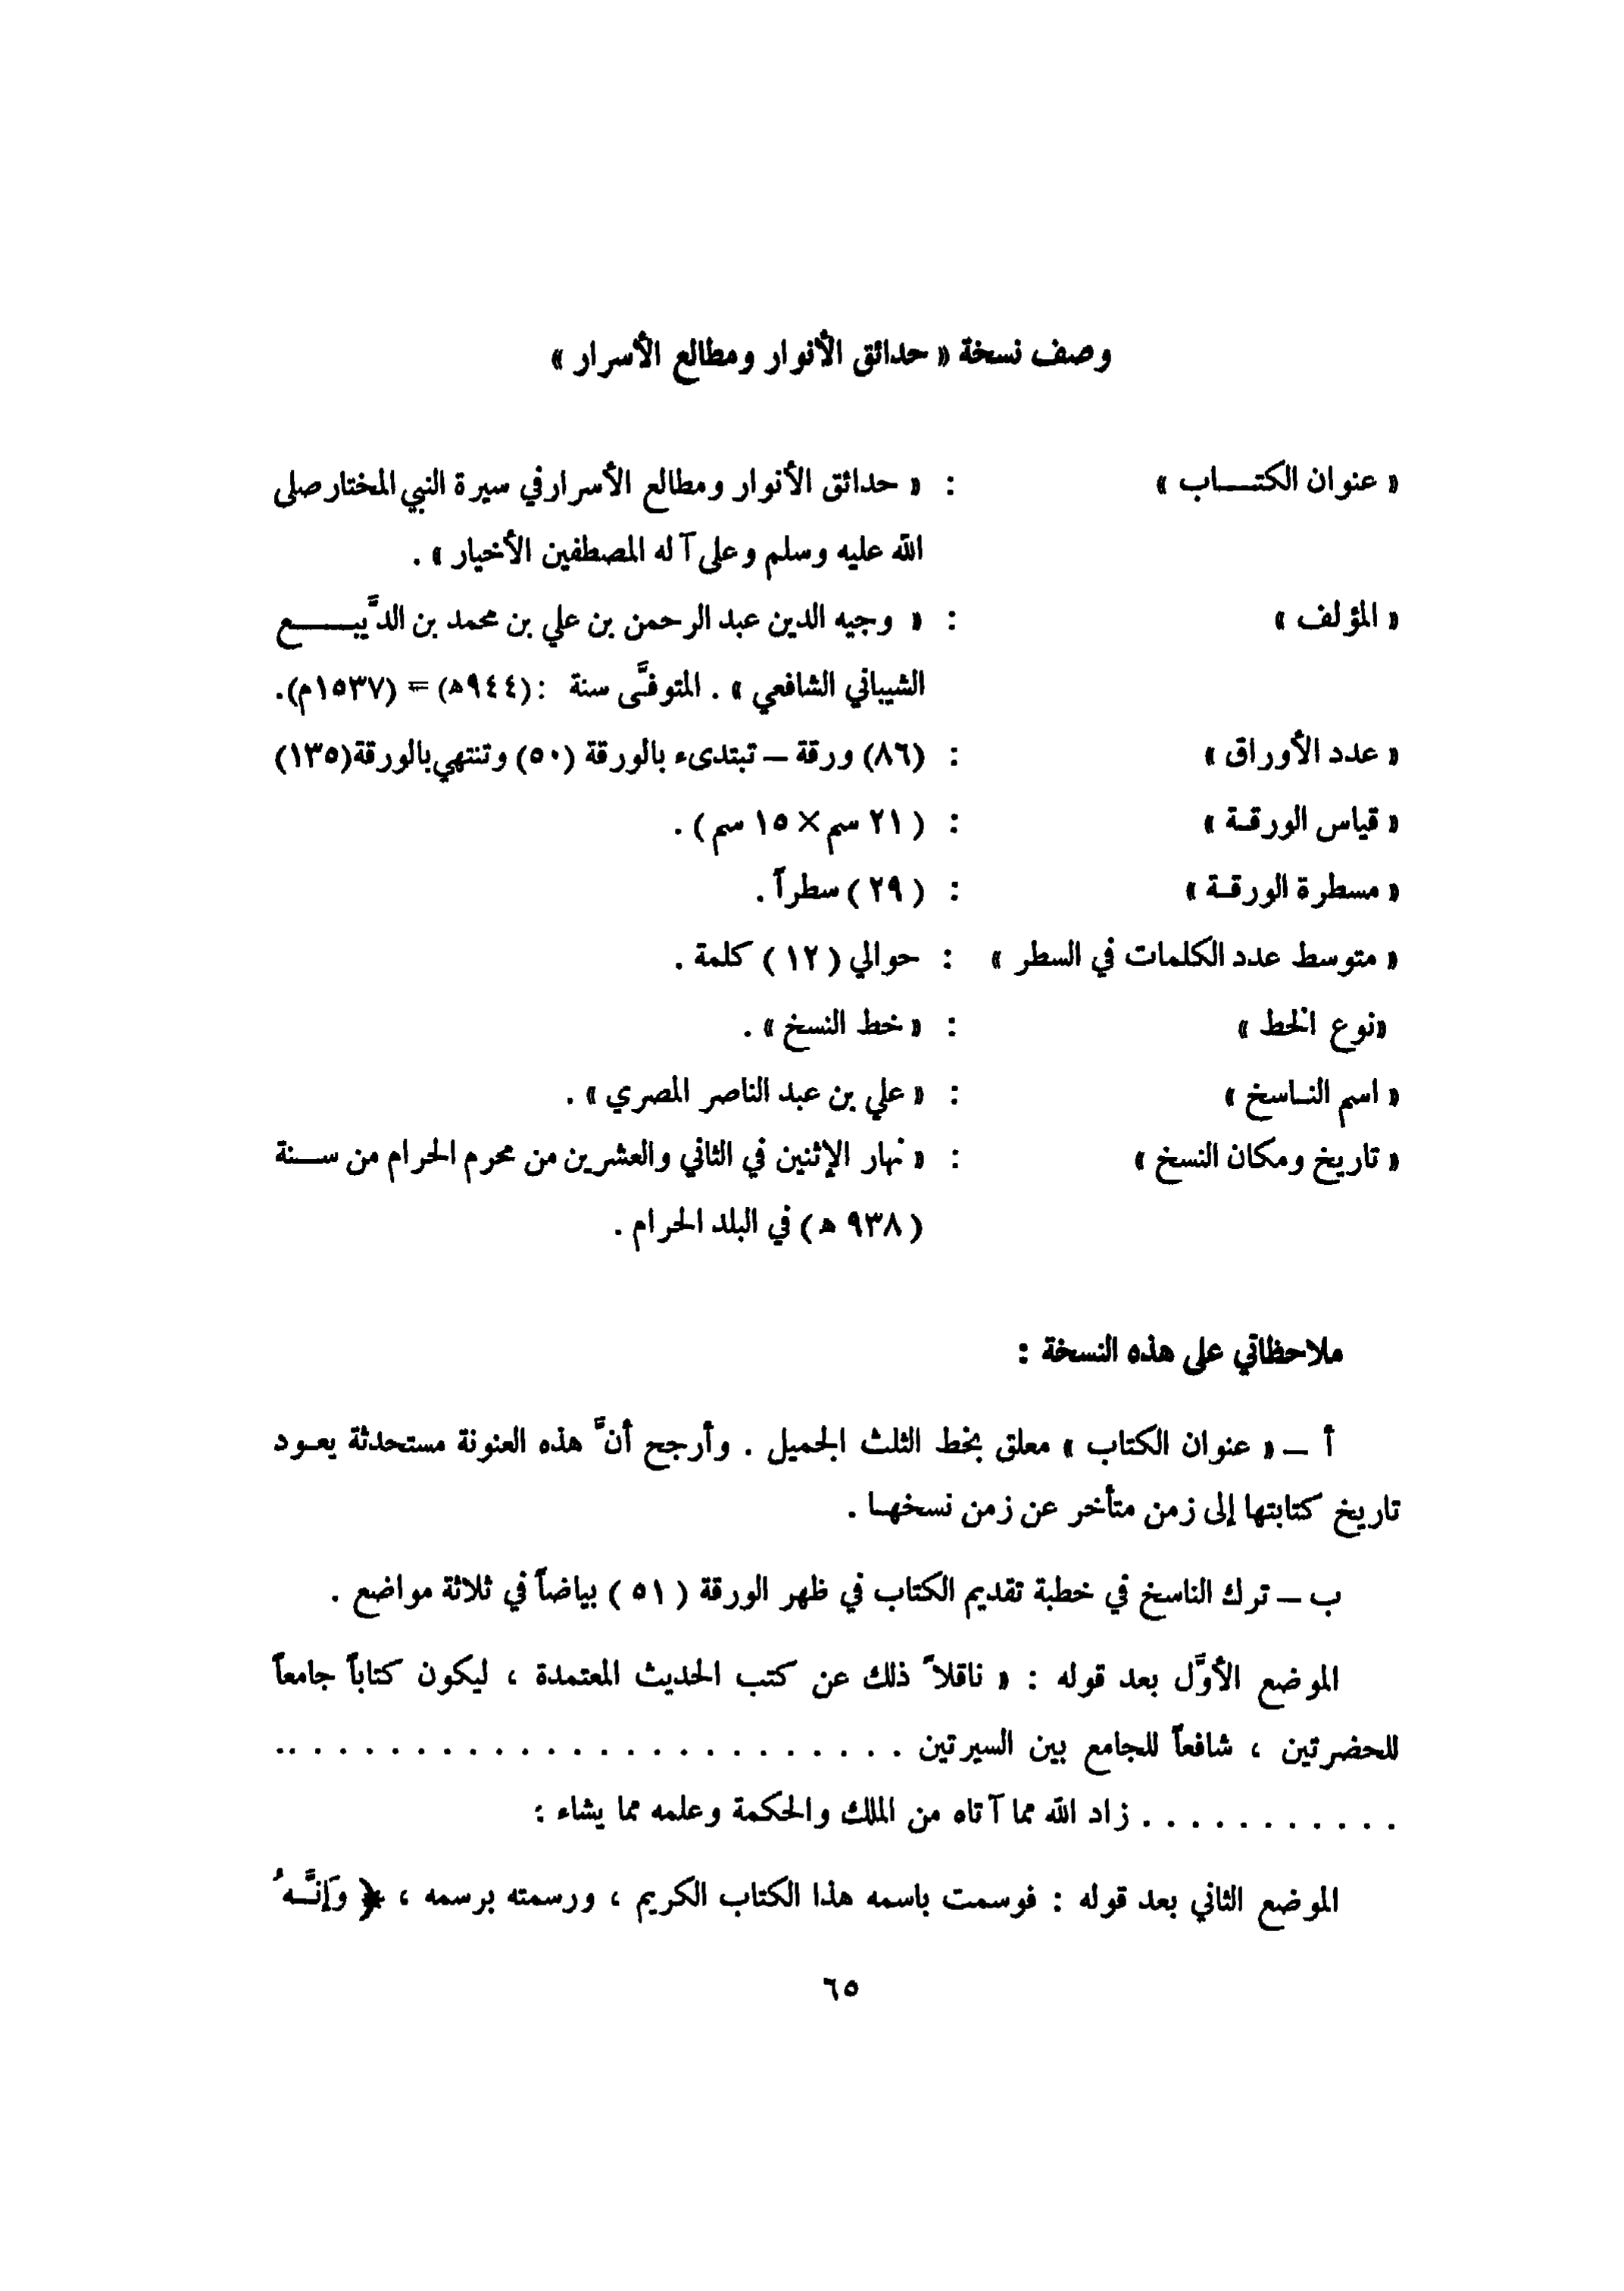 وصف نسخة « حدائق الأنوار ومطالع الأسرار »
« عنوان الكتـــاب » : « حدائق الأنوار ومطالع الأسرار في سيرة النبي المختار صلى
الله عليه وسلم وعلى آله المصطفين الأخيار » .
« المؤلف » : « وجيه الدين عبد الرحمن بن علي بن محمد بن الدَّيبـــــع
الشيباني الشافعي » . المتوفَّى سنة : (٩٤٤ه) = (١٥٣٧م).
« عدد الأوراق » : (٨٦) ورقة – تبتدىء بالورقة (٥٠) وتنتهي بالورقة (١٣٥)
« قياس الورقـة » : ( ٢١ سم × ١٥ سم ) .
« مسطرة الورقـة » : ( ٢٩ ) سطراً .
« متوسط عدد الكلمات في السطر » : حوالي ( ١٢ ) كلمة .
«نوع الخط » : « خط النسخ » .
« اسم النـاسخ » : « علي بن عبد الناصر المصري » .
« تاريخ ومكان النسخ » : « نهار الإثنين في الثاني والعشرين من محرم الحرام من ســنة
( ٩٣٨ ه ) في البلد الحرام .
ملاحظاتي على هذه النسخة :
أ – « عنوان الكتاب » معلق بخط الثلث الجميل . وأرجح أنَّ هذه العنونة مستحدثة يعـود
تاريخ كتابتها إلى زمن متأخر عن زمن نسخهـا .
ب – ترك الناسخ في خطبة تقديم الكتاب في ظهر الورقة ( ٥١ ) بياضاً في ثلاثة مواضع .
الموضع الأوَّل بعد قوله : « ناقلاً ذلك عن كتب الحديث المعتمدة ، ليكون كتاباً جامعاً
للحضرتين ، شافعاً للجامع بين السيرتين . . . . . . . . . . . . . . . . . . . . . . . . . ..
. . . . . . . . . . . زاد الله مما آتاه من الملك والحكمة وعلمه مما يشاء :
الموضع الثاني بعد قوله : فوسمت باسمه هذا الكتاب الكريم ، ورسمته برسمه ، ﴿ وَإنَّـهُ
٦٥